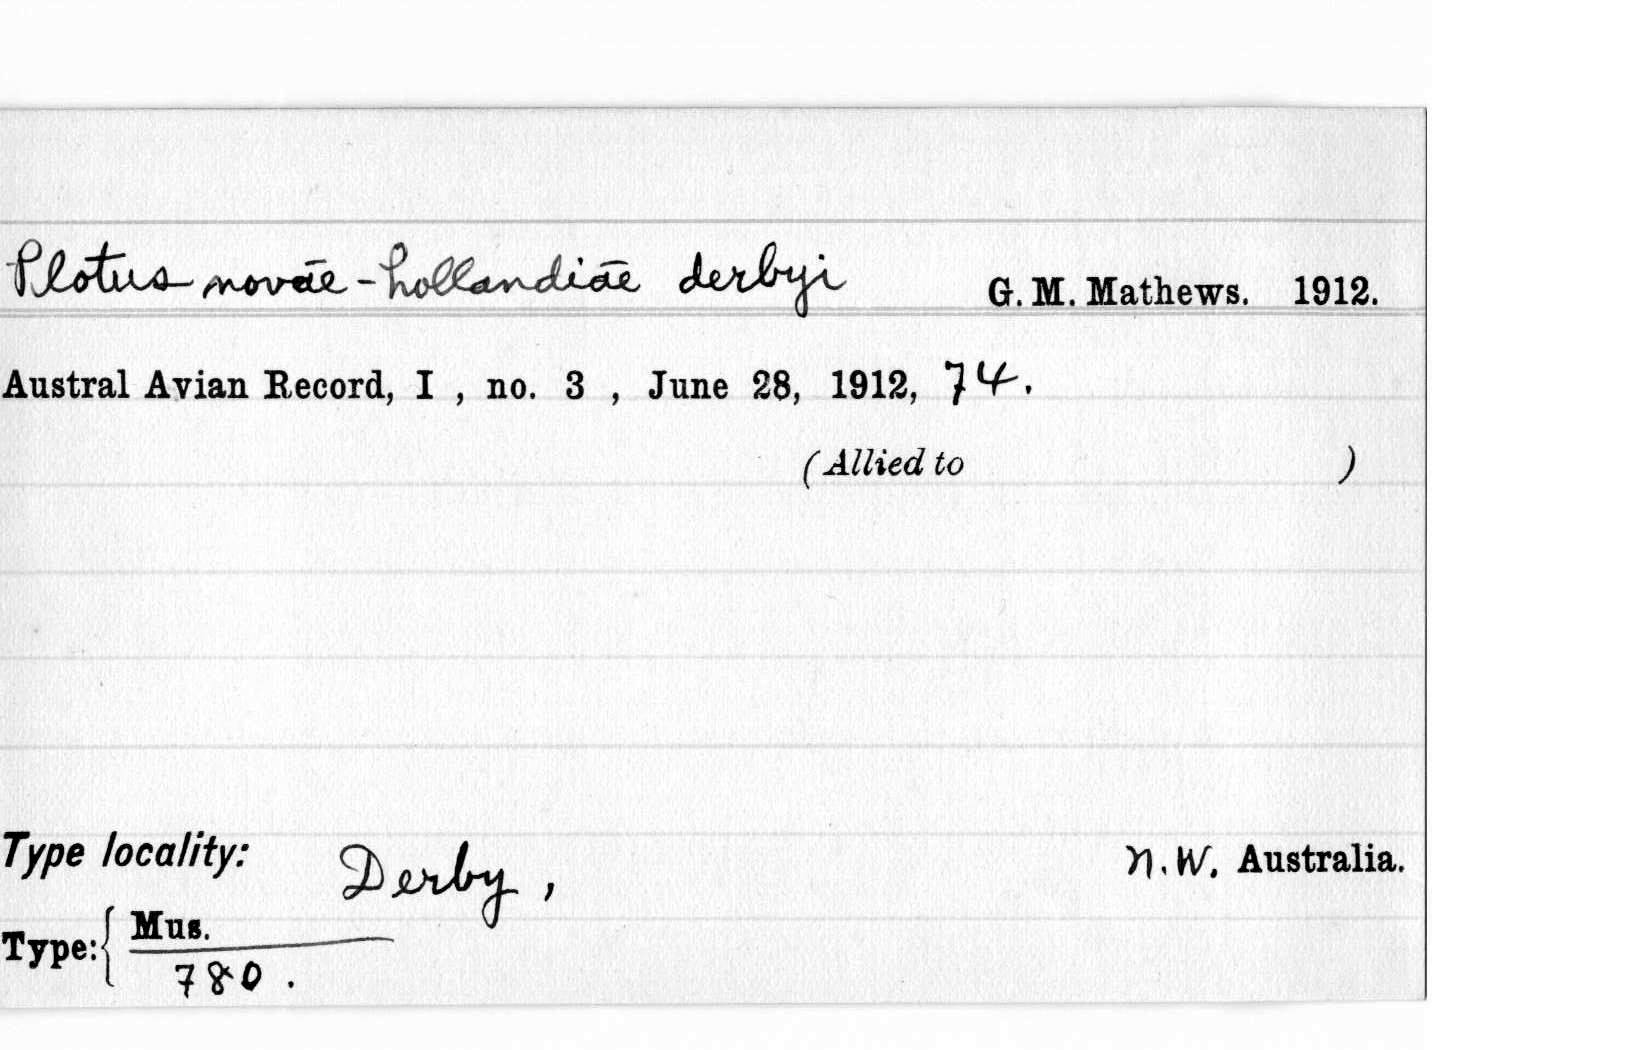 Plotus novāe-hollandiāe derbyi G. M. Mathews. 1912.
Austral Avian Record, I , no. 3 , June 28, 1912, 74.
(Allied to )
Type locality: Derby, N.W. Australia.
Type: { Mus.
780.